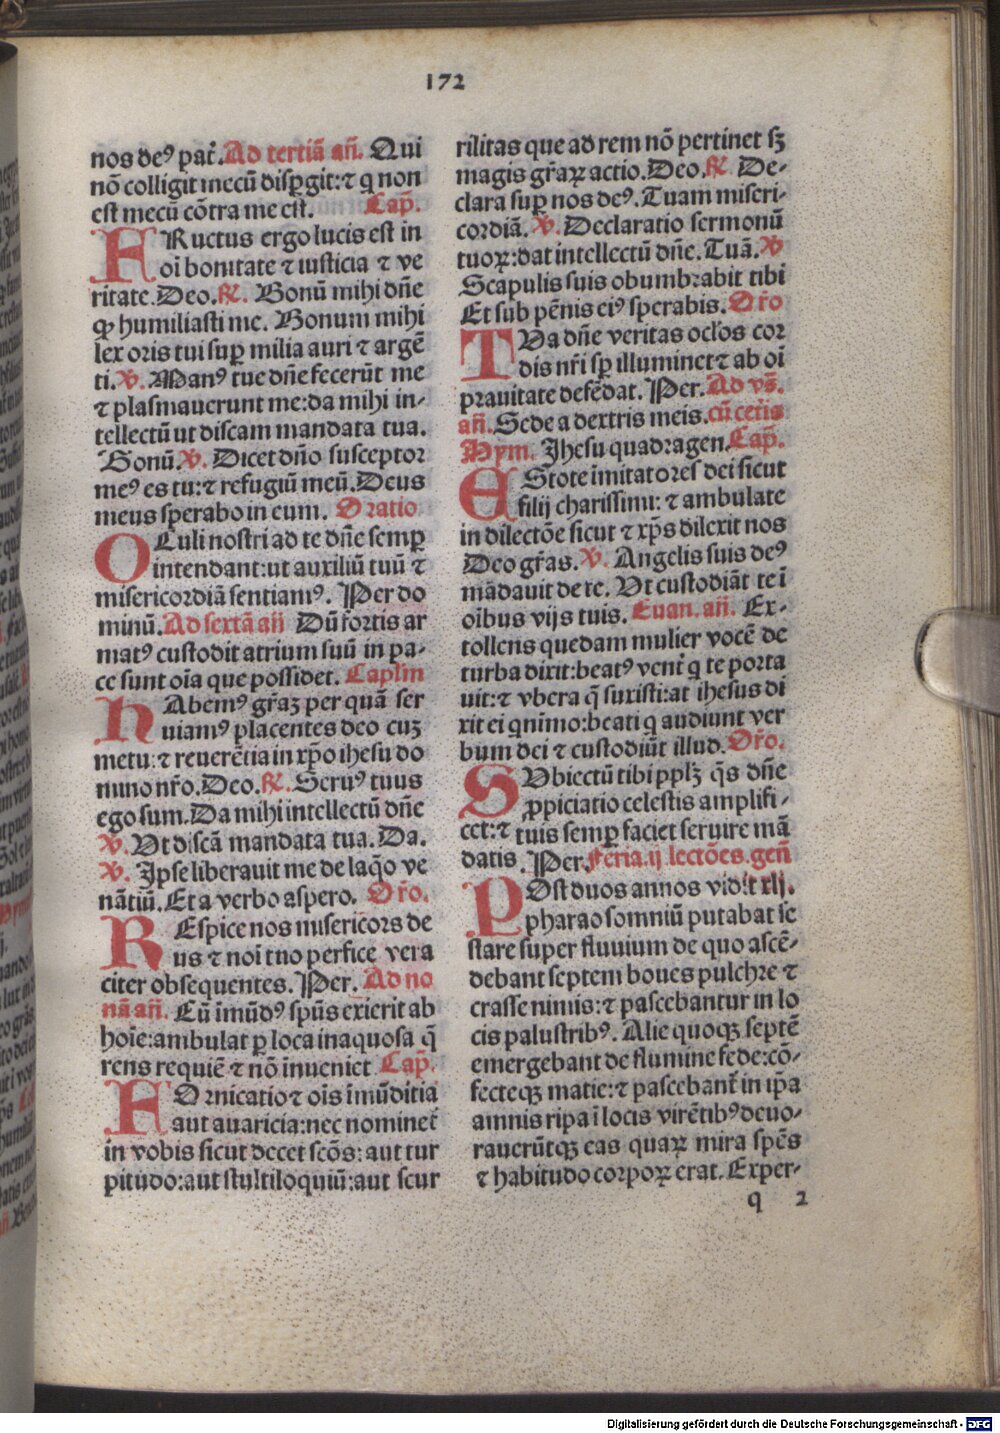 172
nos deꝰ pat̃. Ad tertiã añ. Qui
nõ colligit mecũ disp̱git: ⁊ q non
est mecũ cõtra me est. Cap̃.
FRuctus ergo lucis est in
oĩ bonitate ⁊ iusticia ⁊ ve
ritate. Deo. ℟. Bonũ mihi dñe
ꝙ humiliasti me. Bonum mihi
lex oris tui sup̱ milia auri ⁊ argẽ
ti. ℣. Manꝰ tue dñe fecerũt me
⁊ plasmauerunt me: da mihi in-
tellectũ ut discam mandata tua.
Bonũ. ℣. Dicet dño susceptor
meꝰ es tu: ⁊ refugiũ meũ. Deus
meus sperabo in eum. Oratio
OCuli nostri ad te dñe semp̱
intendant: ut auxiliũ tuũ ⁊
misericordiã sentiamꝰ. Per do
minũ. Ad sextã añ Dũ fortis ar
matꝰ custodit atrium suũ in pa-
ce sunt oĩa que possidet. Caplm
HAbemꝰ gr̃aꝫ per quã ser
uiamꝰ placentes deo cuꝫ
metu: ⁊ reuerẽtia in xp̃o ihesu do
mino nr̃o. Deo. ℟. Seruꝰ tuus
ego sum. Da mihi intellectũ dñe
℣. Vt discã mandata tua. Da.
℣. Ipse liberauit me de laq̃o ve
nãtiũ. Et a verbo aspero. Or̃o.
REspice nos misericors de
us ⁊ noĩ tuo perfice vera
citer obsequentes. Per. Ad no
nã añ. Cũ imũdꝰ spũs exierit ab
hoĩe: ambulat p̱ loca inaquosa q̃
rens requiẽ ⁊ nõ inueniet Cap̃.
FOrnicatio ⁊ oĩs imũditia
aut auaricia: nec nominet̃
in vobis sicut decet scõs: aut tur
pitudo: aut stultiloquiũ: aut scur
rilitas que ad rem nõ pertinet sꝫ
magis gr̃aꝝ actio. Deo. ℟. De-
clara sup̱ nos deꝰ. Tuam miseri-
cordiã. ℣. Declaratio sermonũ
tuoꝝ: dat intellectũ dñe. Tuã. ℣
Scapulis suis obumbrabit tibi
Et sub pẽnis eiꝰ sperabis. Or̃o
TVa dñe veritas ocl̃os cor
dis nr̃i sp̱ illuminet ⁊ ab oĩ
prauitate defẽdat. Per. Ad vs̃.
añ. Sede a dextris meis. cũ cet̃is
Hym. Jhesu quadragen. Cap̃.
EStote imitatores dei sicut
filij charissimi: ⁊ ambulate
in dilectõe sicut ⁊ xp̃s dilexit nos
Deo gr̃as. ℣. Angelis suis deꝰ
mãdauit de te. Vt custodiãt te ĩ
oĩbus vijs tuis. Euan. añ. Ex-
tollens quedam mulier vocẽ de
turba dixit: beatꝰ vent̃ q te porta
uit: ⁊ vbera q̃ suxisti: at ihesus di
xit ei qnimo: beati q audiunt ver
bum dei ⁊ custodiũt illud. Or̃o.
SVbiectũ tibi pplꝫ q̃s dñe
ꝓpiciatio celestis amplifi-
cet: ⁊ tuis semp̱ faciet seruire mã
datis. Per. feria. ij lectões. geñ
POst duos annos vidit xlj.
pharao somniũ putabat se
stare super fluuium de quo ascẽ-
debant septem boues pulchre ⁊
crasse nimis: ⁊ pascebantur in lo
cis palustribꝰ. Alie quoqꝫ septẽ
emergebant de flumine fede: cõ-
fecteqꝫ macie: ⁊ pascebant̃ in ip̃a
amnis ripa ĩ locis virẽtibꝰ deuo-
rauerũtqꝫ eas quaꝝ mira spẽs
⁊ habitudo corpoꝝ erat. Exper-
q 2
Digitalisierung gefördert durch die Deutsche Forschungsgemeinschaft - DFG